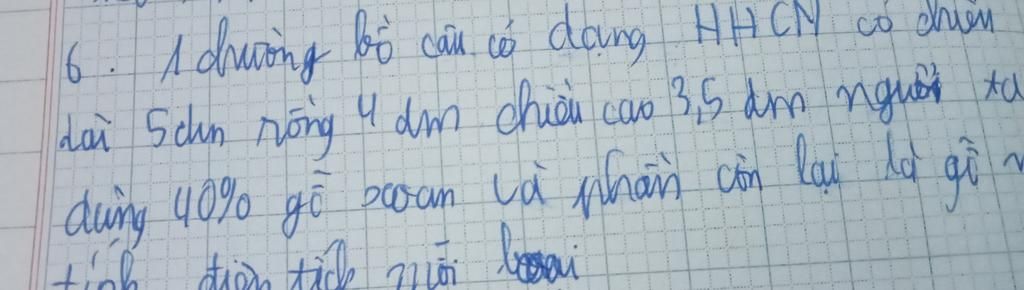 6. 1 chuồng bồ câu có dạng HHCN có chiều
dài 5dm rộng 4 dm chiều cao 3,5 dm người ta
dùng 40% gỗ xoan và phần còn lại là gỗ
tính diện tích mỗi loại